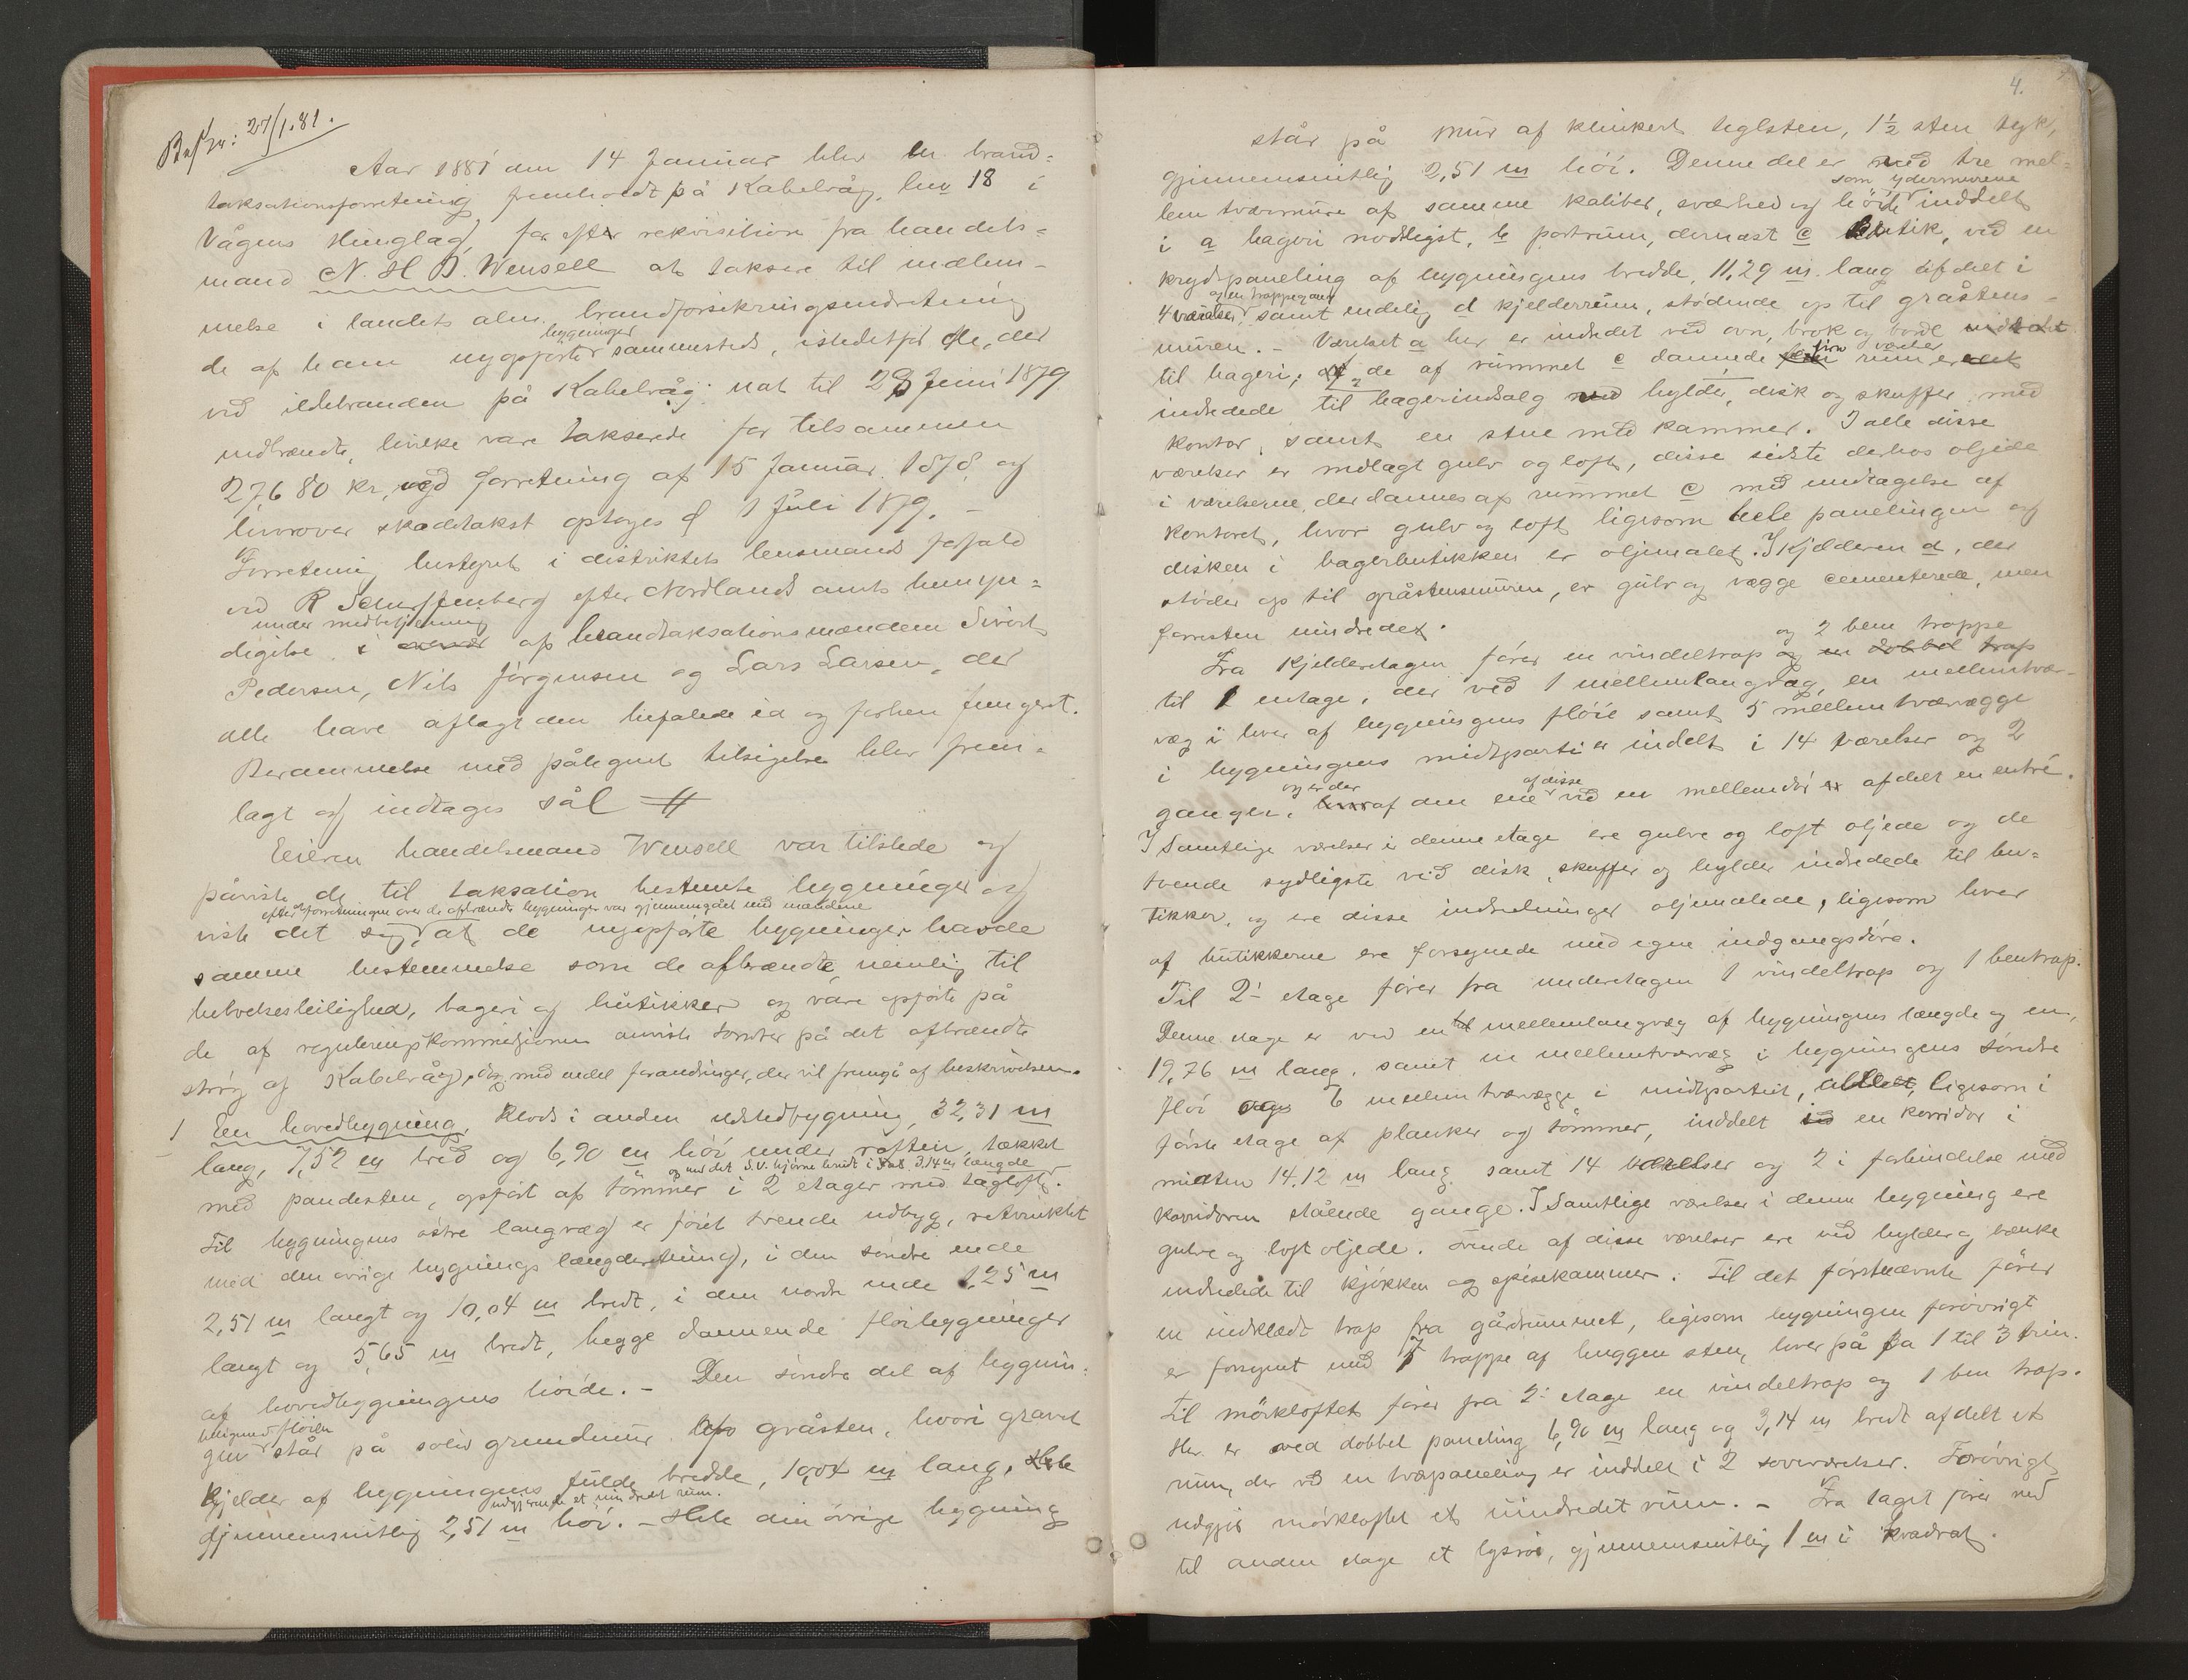 27/1.81.
Aar 1881 den 14 Januar blev en brand=
taksationsforretning fremholdt på Kabelvåg, lno 18 i
Vågens thinglag, for efter rekvisition fra handels=
mand N. H. D. Wensell at taksere til indlem-
melse i landets alm. brandforsikringsindretning
de af ham nyopførte bygninger sammesteds, istedetfor de, der
ved ildebranden på Kabelvåg nat til 23 Juni 1879
nedbrændte, hvilke vare takserede for tilsammen
27,680 kr, ved forretning af 15 Januar 1878, og
hvorover skadetakst optoges d 1 Juli 1879. -
Forretning bestyret i distriktets lensmands forfald
ved R Scharffenberg efter Nordlands amts bemyn=
under medbetjening
digelse af brandtaksationsmændene Sivert
Pedersen, Nils Jörgensen og Lars Larsen, der
alle have aflagt den befalede ed og forhen fungeret.
Berammelse med påtegnet tilsigelse blev frem=
lagt og indtages sål #
Eieren handelsmand Wensell var tilstede og
påviste de til taksation bestemte bygninger og
efterat forretningen over de afbrændte bygninger var gjennemgået med mændene
viste det sig, at de nyopførte bygninger havde
samme bestemmelse som de afbrændte, nemlig til
beboelsesleilighed, bageri og butikker og vare opførte på
de af reguleringskommisjonen anviste tomter på det afbrændte
strøg af Kabelvåg, dog med endel forandringer, der vil fremgå af beskrivelsen.
1 En hovedbygning, klods i anden udstedbygning, 32,31 m
lang, 7,52 m bred og 6,90 m höi under røsten, tækket
og med det S.V. hjørne brudt i 3,14 m længde
med pandesten, opført af tømmer i 2 etager med tagloft.
Til bygningens østre langvæg er føiet tvende udbyg, retvinklet
med den øvrige bygnings længderetning, i den søndre ende
2,51 m langt og 10,04 m bredt, i den nordre ende 1,25 m
langt og 5,65 m bredt, begge dannende fløibygninger
af hovedbygningens høide. - Den søndre del af bygnin=
beligende fløien
gen står på solid grundmur af gråsten, hvori gravet
kjelder af bygningens fulde bredde, 10,04 m lang,
udgjørende et uindredet rum.
gjennemsnitlig 2,51 m höi. - Hele den øvrige bygning
4.
står på mur af klinkert teglsten, 1½ sten tyk,
gjennemsnitlig 2,51 m höi. Denne del er med tre mel=
som ydermurene
lem tværmure af samme kaliber, sværhed og höide inddelt
i a bageri nordligst, b portrum, dernæst c butik, ved en
krydspaneling af bygningens bredde, 11,29 m. lang afdelt i
og en trappegang
4 værelser, samt endelig d kjelderrum, stødende op til gråstens-
muren. - Værelset a her er indredet ved ovn, brok og borde
fire værelser
til bageri, af de af rummet c dannede rum er
indredede til bagerindsalg med hylder, disk og skuffer, med
kontor, samt en stue med kammer. I alle disse
værelser er indlagt gulv og loft, disse sidste derhos oljede
i værelserne, der dannes af rummet c med undtagelse af
kontoret, hvor gulv og loft ligesom hele panelingen og
disken i bagerbutikken er oljemalet. I kjælderen d, der
støder op til gråstensmuren, er gulv og vægge cementerede, men
forresten uindredet.
og 2 ben trappe
Fra kjelderetagen fører en vindeltrap og en dobbel trap
til 1 entage, der ved 1 mellemlangvæg, en mellemtvær-
væg i hver af bygningens fløie samt 5 mellemtværvægge
i bygningens midtparti er inddelt i 14 værelser og 2
og er der af disse
ganger, hvoraf den ene ved en mellemdør er afdelt en entré.
I samtlige værelser i denne etage ere gulve og loft oljede og de
tvende sydligste ved disk, skuffer og hylder indredede til bu=
tikker, og ere disse indredninger oljemalede, ligesom hver
af butikkerne ere forsynede med egne indgangsdøre.
Til 2: etage fører fra underetagen 1 vindeltrap og 1 bentrap.
Denne etage er ved en mellemlangvæg af bygningens længde og en,
19,76 m lang, samt en mellemtværvæg i bygningens søndre
fløi og 6 mellemtværvægge i midtpartiet, alt ligesom i
første etage af planker og tømmer, inddelt i en korridor i
midten 14.12 m lang, samt 14 værelser og 2 i forbindelse med
korridoren stående gange. I samtlige værelser i denne bygning ere
gulve og loft oljede. Tvende af disse værelser ere ved hylder og bænke
indredede til kjøkken og spisekammer. Til det førstnævnte fører
en indklædt trap fra gårdrummet, ligesom bygningen forøvrigt
er forsynet med 7 trappe af huggen sten, hver på fra 1 til 3 trin.
Til mörkloftet fører fra 2: etage en vindeltrap og 1 ben trap.
Her er ved dobbel paneling 6,90 m lang og 3,14 m bredt afdelt et
rum, der ved en tværpaneling er inddelt i 2 soveværelser. Forøvrigt
udgjør mörkloftet et uindredet rum. - Fra taget fører ned
til anden etage et lysrør, gjennemsnitlig 1 m i kvadrat.